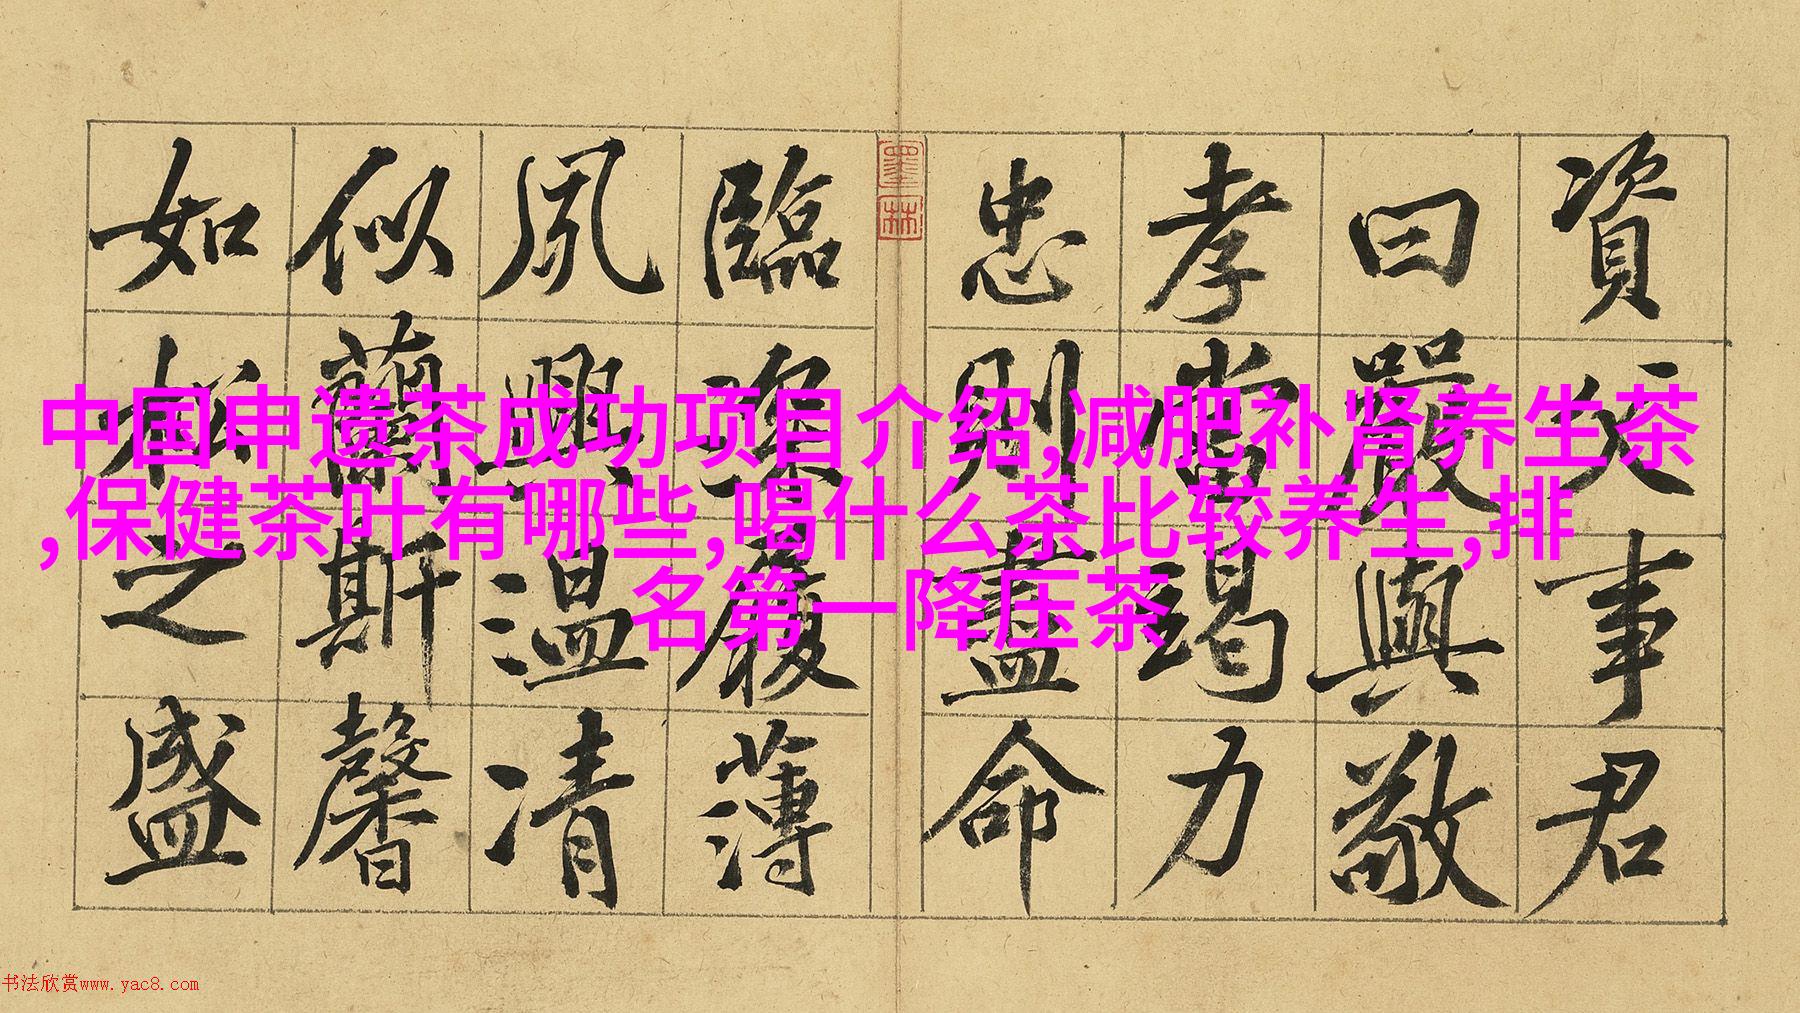 資父事君
曰嚴與敬
孝當竭力
忠則盡命
臨深履薄
夙興温凊
似蘭斯馨
如松之盛
墨林
中国申遗茶成功项目介绍,减肥补肾养生茶
,保健茶叶有哪些,喝什么茶比较养生,排
名第一降压茶
书法欣赏www.yac8.com